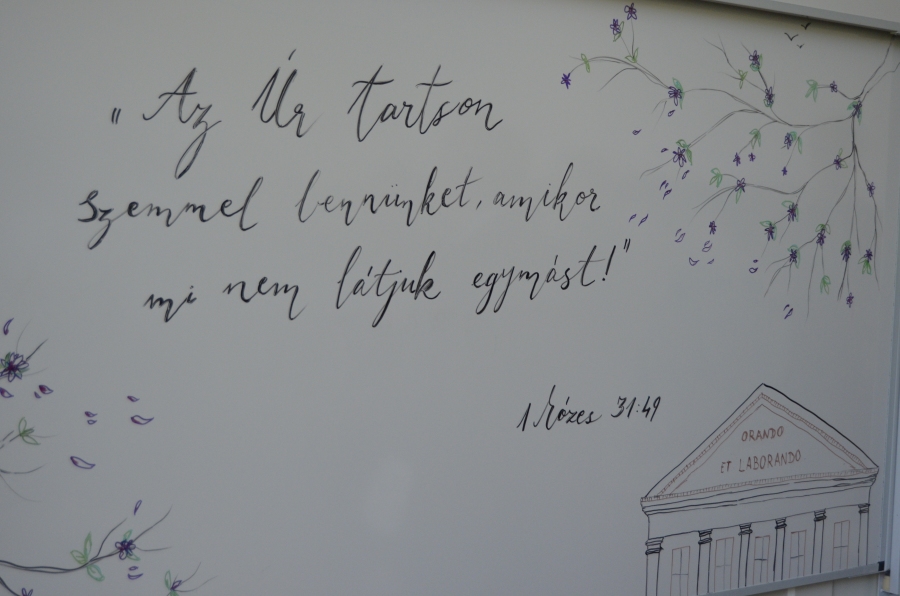 „Az Úr tartson
szemmel bennünket, amikor
mi nem látjuk egymást!"
1 Mózes 31:49
ORANDO
ET LABORANDO